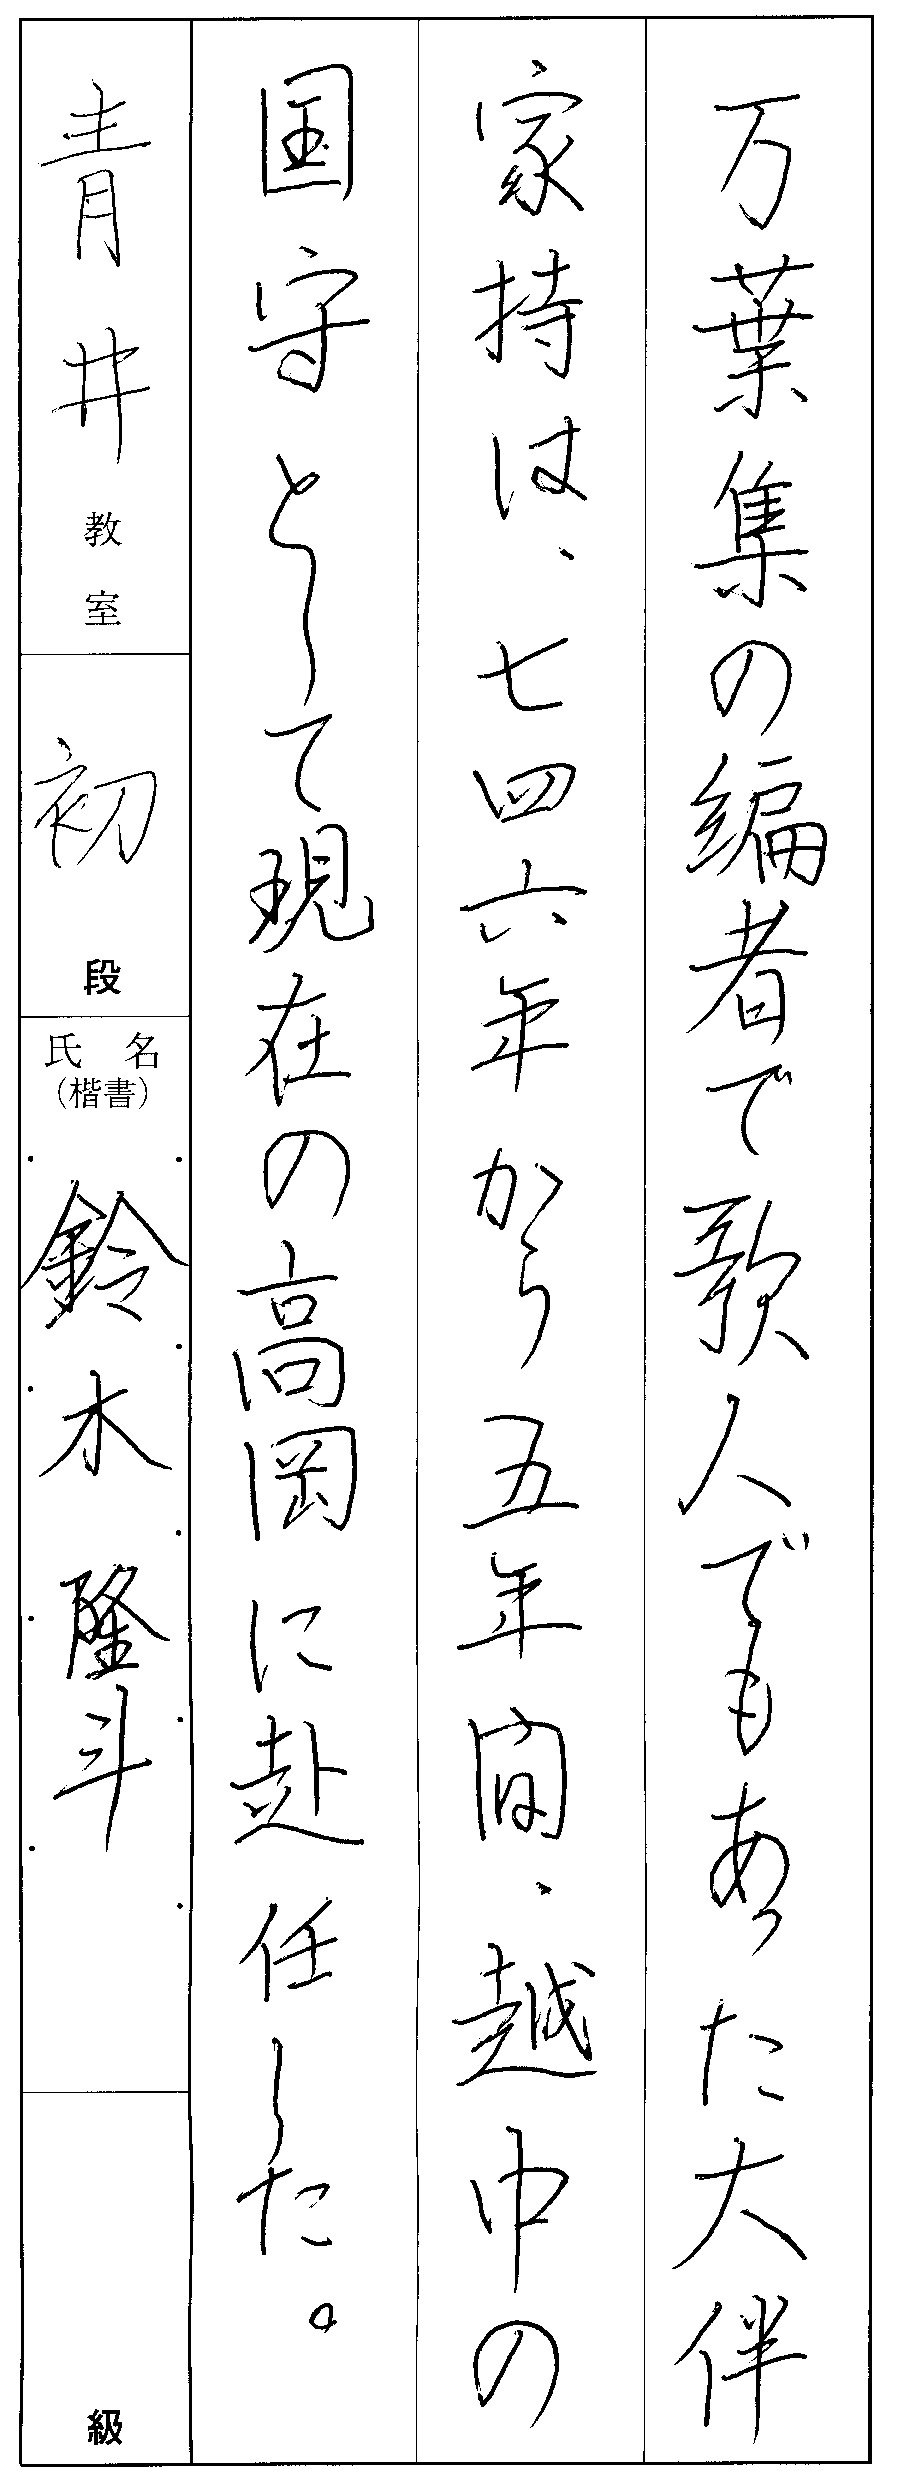 万葉集の編者で歌人でもあった大伴
家持は、七四六年から五年間、越中の
国守として現在の高岡に赴任した。
青井教室
初段
氏名
(楷書)
鈴木隆斗
級